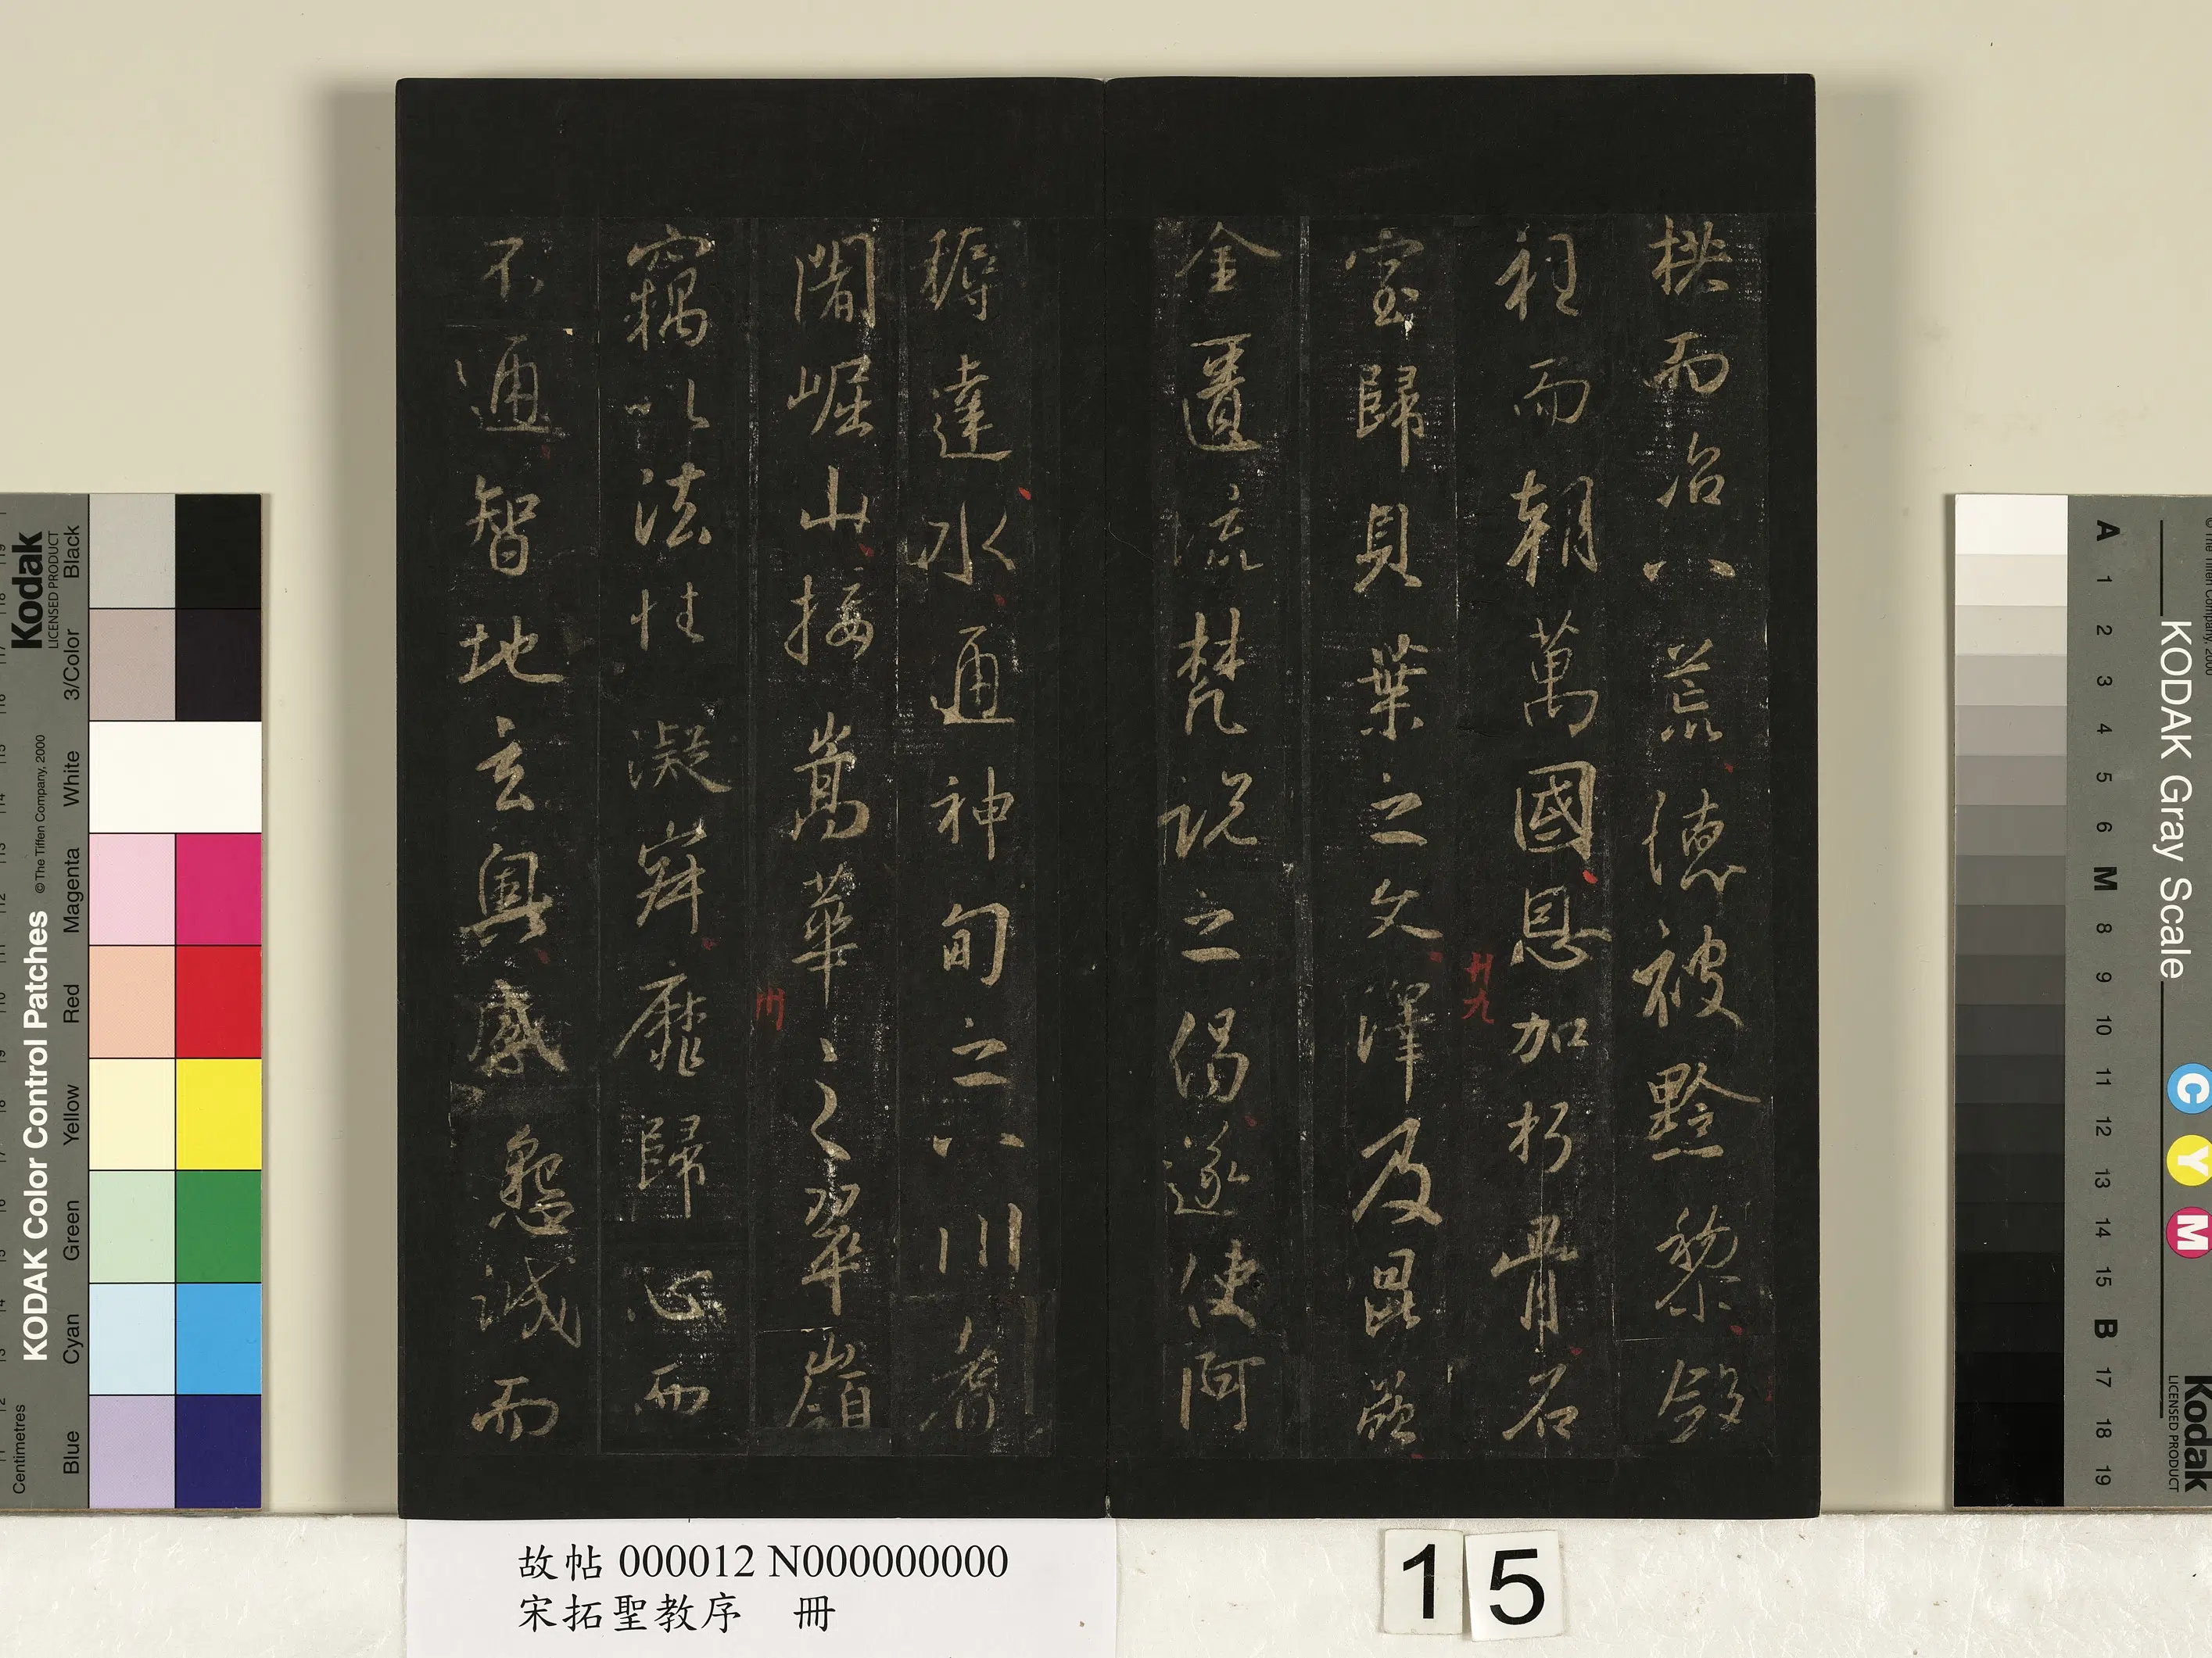 拱而治八荒德被黔黎斂
衽而朝萬國恩加朽骨石
廿九
室歸貝葉之文澤及昆蟲
金匱流梵說之偈遂使阿
耨達水通神甸之八川耆
闍崛山接嵩華之翠嶺
卅
竊以法性凝寂靡歸心而
不通智地玄奧感懇誠而
故帖 000012 N000000000
宋拓聖教序 冊
15
Kodak
LICENSED PRODUCT
KODAK Color Control Patches
©The Tiffen Company, 2000
Centimetres
Black
3/Color
White
Magenta
Red
Yellow
Green
Cyan
Blue
KODAK Gray Scale
A 1 2 3 4 5 6 M 8 9 10 11 12 13 14 15 B 17 18 19
C Y M
Kodak
LICENSED PRODUCT